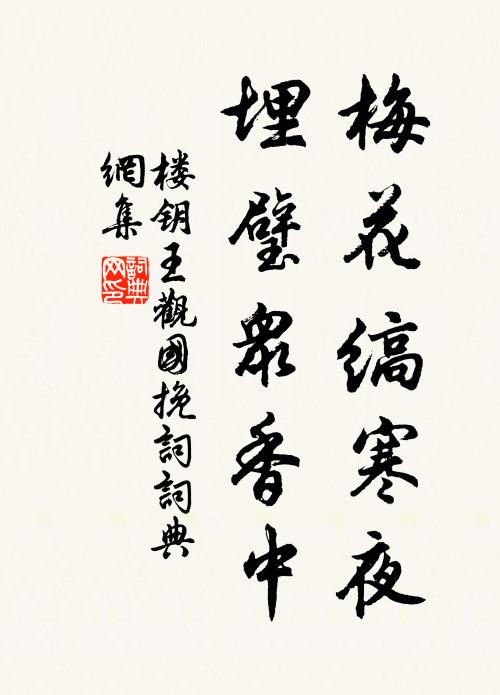 梅花缟寒夜
埋璧眾香中
楼钥王觀國挽詞詞典
網集
詞典
网印